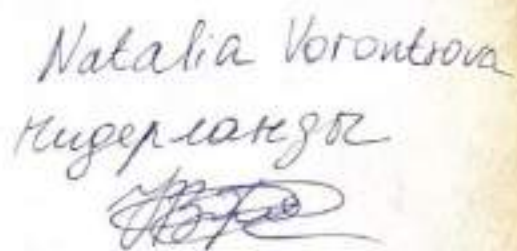 Natalia Vorontsova
Нидерланды